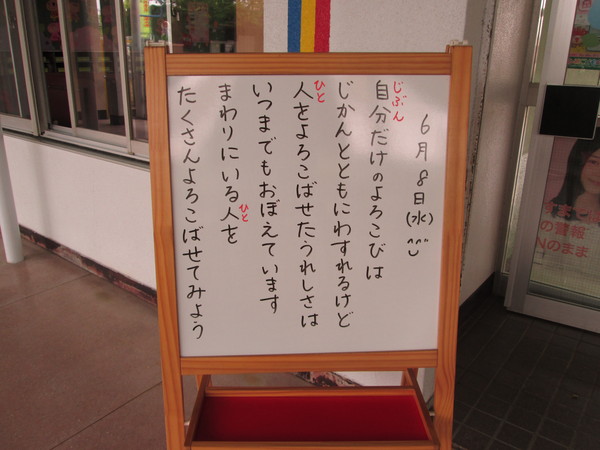 6月8日(水)
自分だけのよろこびは
じぶん
じかんとともにわすれるけど
人をよろこばせたうれしさは
ひと
いつまでもおぼえています
まわりにいる人を
ひと
たくさんよろこばせてみよう
の警報
Nのまま